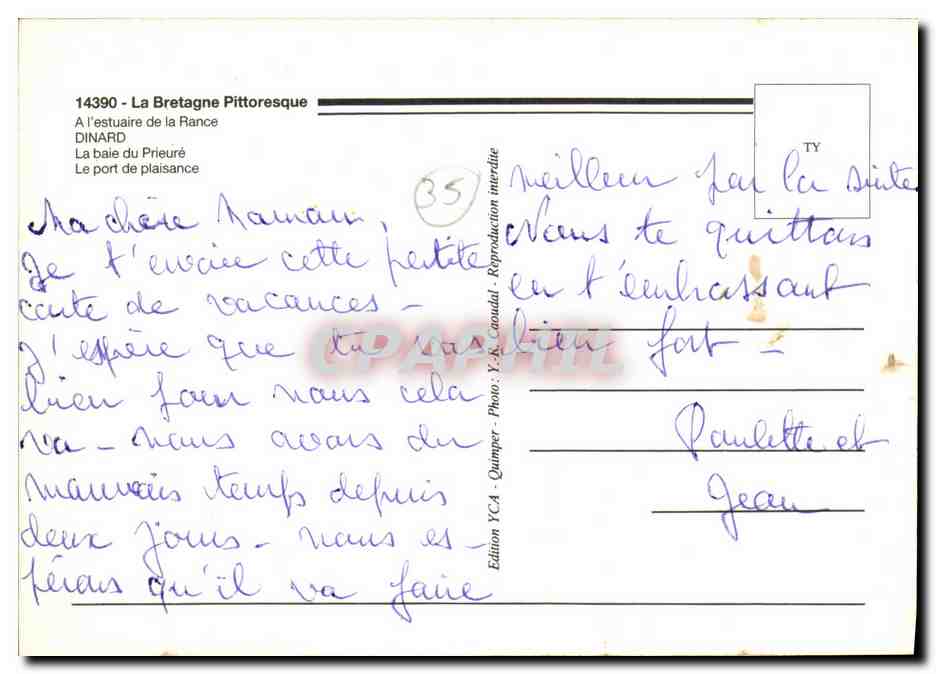 14390 - La Bretagne Pittoresque
A l'estuaire de la Rance
DINARD
La baie du Prieuré
Le port de plaisance
35
TY
Ma chère Maman,
Je t'envoie cette petite
carte de vacances -
j'espère que tu vas
bien pour nous cela
va - nous avons du
mauvais temps depuis
deux jours - nous es-
pérons qu'il va faire
Edition YCA - Quimper - Photo : Y.-R. Caoudal - Reproduction interdite
meilleur par la suite
Nous te quittons
en t'embrassant
bien fort -
Paulette et
Jean
CPAPHIL